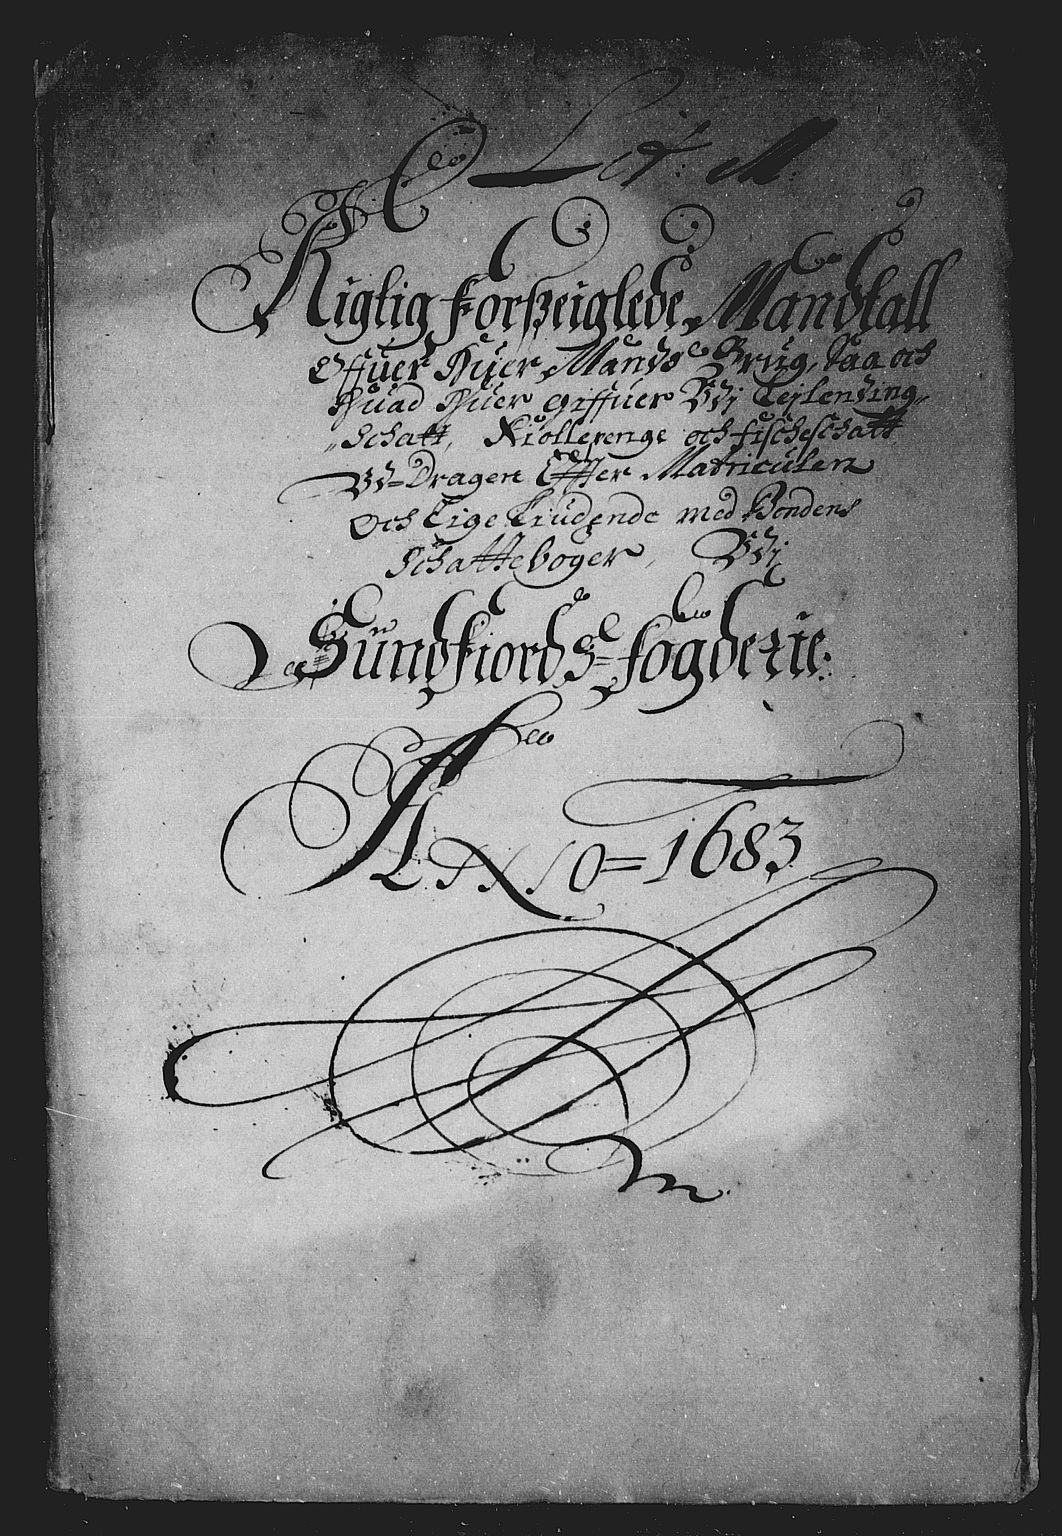 Lit: M:
Rigtig Forßeiglede Mandtall
Offuer Huer Mands Brug, Saa och
Huad Huer giffuer Vdj Lejlending„
„Schatt, Kiollepenge och fischeschatt
Vd=Dragen Effter Matriculen
Och Lige Liudende med Bondens
Schattebøger, Vdj
Sundfiords=fogderie:
ANNO=1683